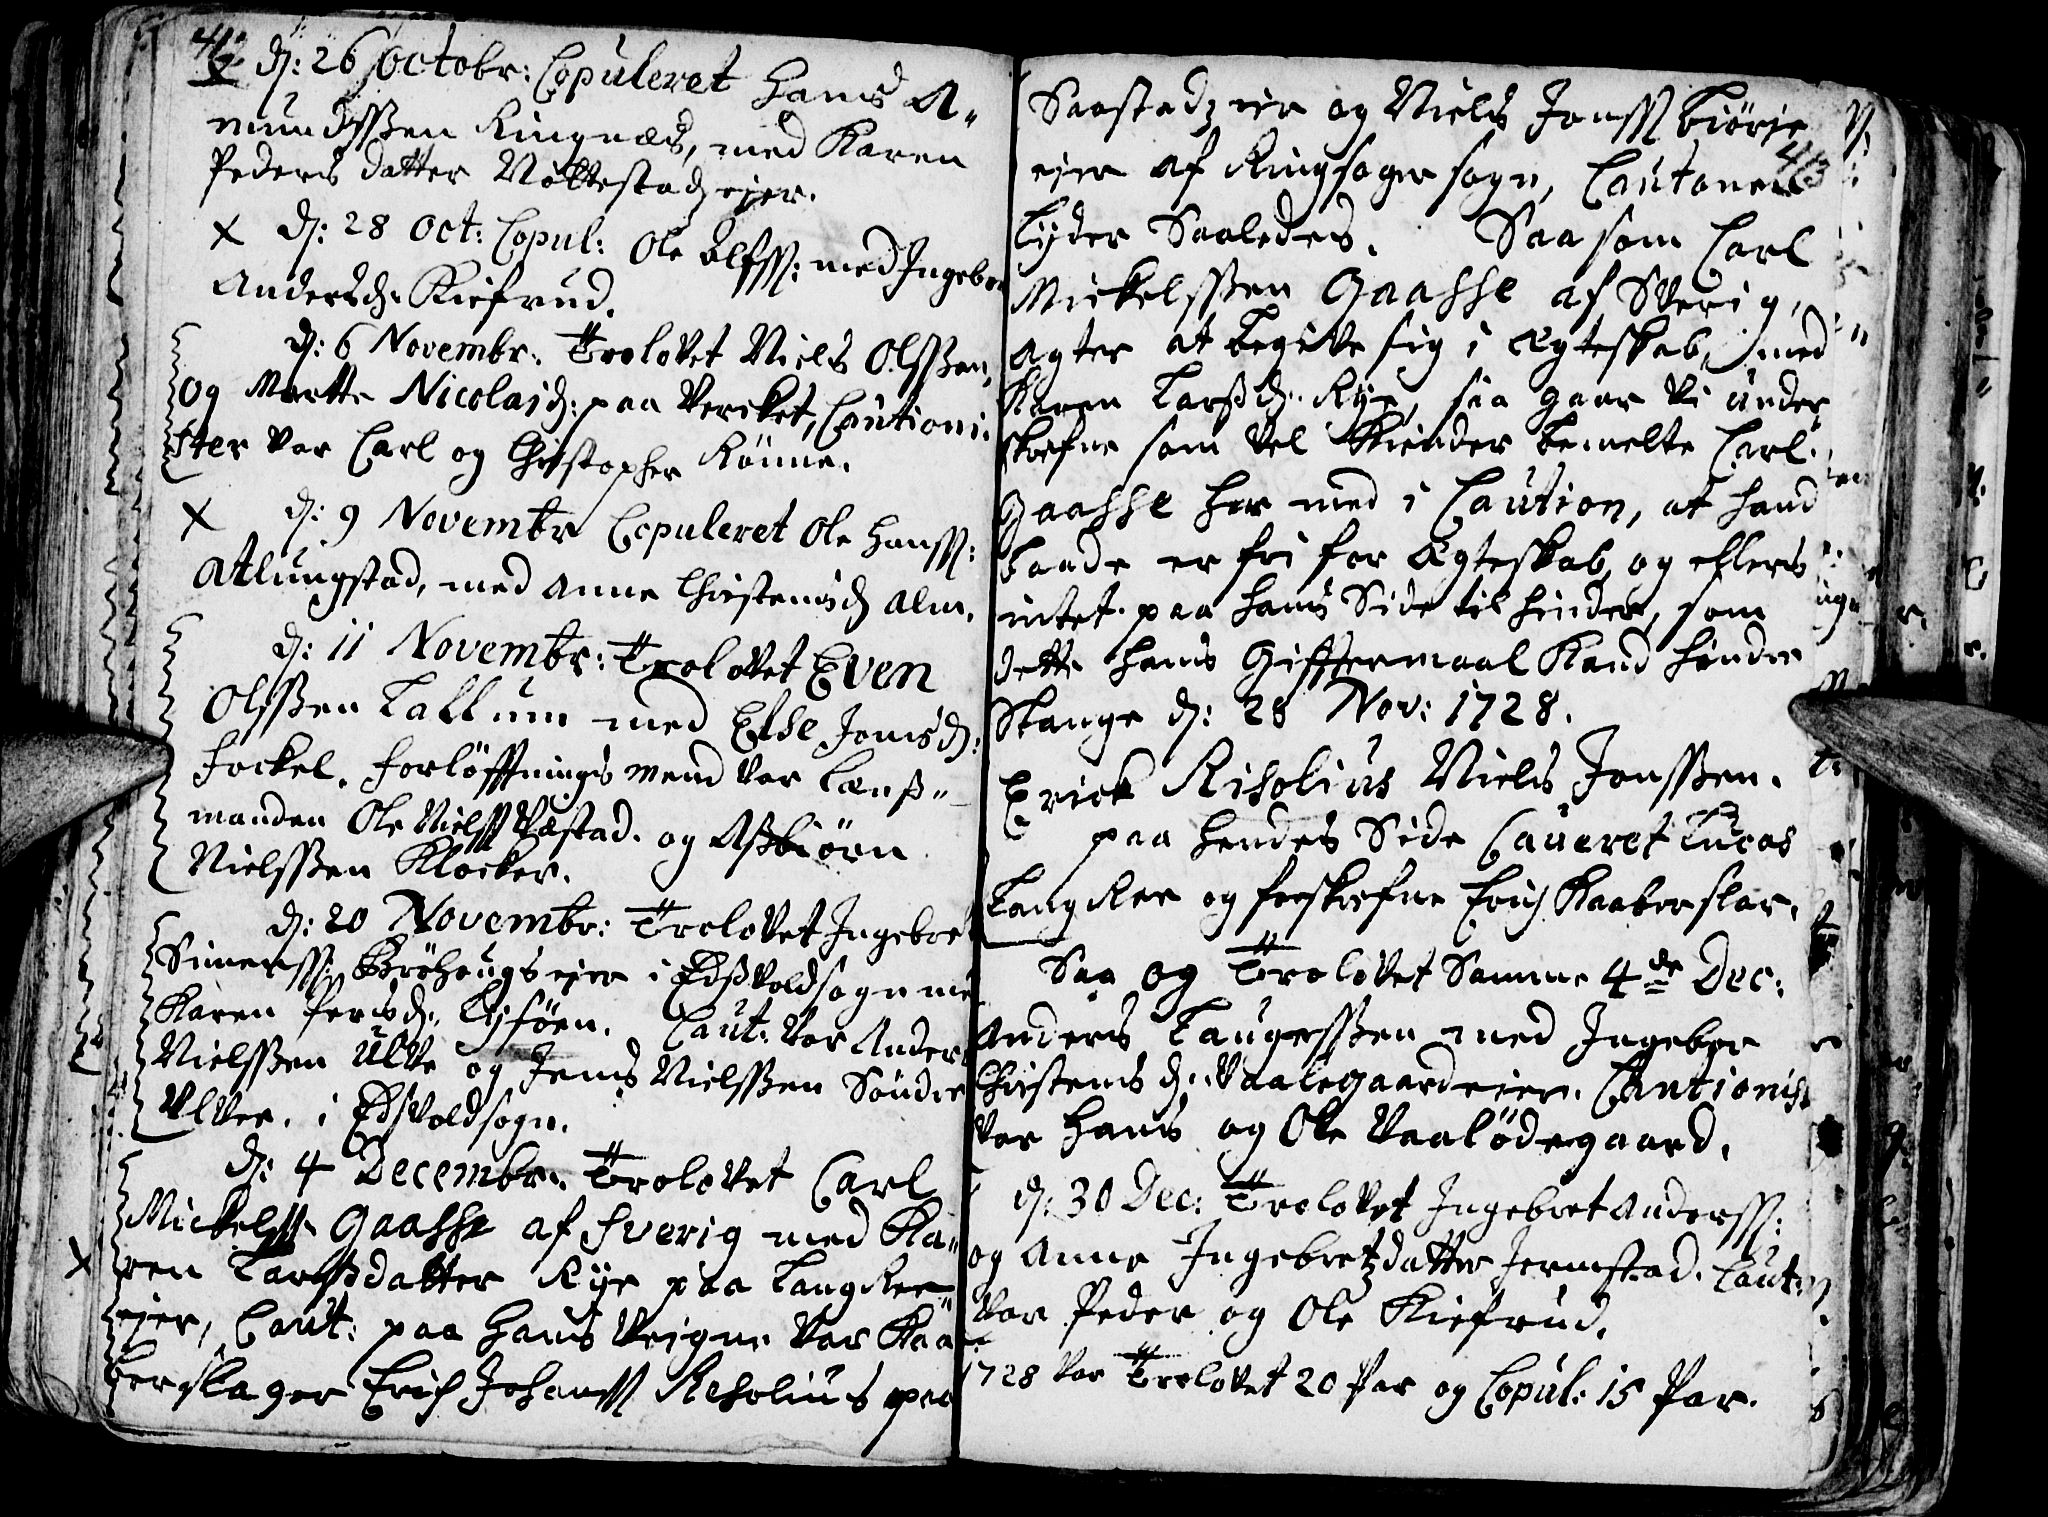 412
d: 26 Octobr: Copuleret Hans A-
mundssen Ringnæs, med Karen
Peders datter Nøttestad ejer.
x d: 28 Oct: Copul: Ole Olss: med Ingebor
Andersd: Kiefrud.
d: 6 Novembr: Trolovet Niels Olssen,
og Marthe Nicolaid: paa Vercket, Cautioni-
ster var Carl og Christopher Rønne.
x d: 9 Novembr Copuleret Ole Hanss:
Atlungstad, med Anne Christensd Alm.
d: 11 Novembr: Trolovet Even
Olssen Tallum med Else Jonsd:
Fockel. Forløffnings mend var Lens-
manden Ole Nielss Væstad. og Asbiørn
Nielssen Klocker.
d: 20 Novembr: Trolovet Ingebret
Simenss: Brøhougs ejer i Edsvold sogn med
Karen Persd: Lysøen. Caut: var Anders
Nielssen Ulve og Jens Nielssen Søndre
Ulven. i Edsvold sogn.
d: 4 Decembr: Trolovet Carl
Mickelss. Gaasse af Sverig med Ka-
x ren Larsdatter Rye paa Tangen
ejer, Caut: paa hans Veigne var Kaa-
berslager Erich Johanss Risolius paa
413
Saastad ejer og Niels Jonss Biørge
ejer af Ringsager sogn, Cautonen
lyder Saaledes. Saasom Carl
Mickelssen Gaasse af Sverig,
agter at begive sig i Ægteskab, med
Karen Larsd: Rye, saa gaar vi under
skrefne som vel kiender bemelte Carl
Gaasse her med i Caution, at hand
baade er fri for Ægteskab, og ellers
intet paa hans Side til hinder, som
dette hans Gifftermaal kand hindre
Stange d: 28 Nov: 1728.
Erick Risolius Niels Jonssen.
paa hendes Side Caveret Lucas
Tangen og forskrefne Erich Kaaberslar.
Saa og Trolovet Samme 4de Dec:
Anders Taugerssen med Ingebor
Christens d: Vaalegaard ejer. Cautionist
var Hans og Ole Vaalødegaard.
d: 30 Dec: Trolovet Ingebret Anderss:
og Anne Ingebretzdatter Jermstad. Caut:
var Peder og Ole Kiefrud.
1728 var Trolovet 20 Par og Copul: 15 Par.